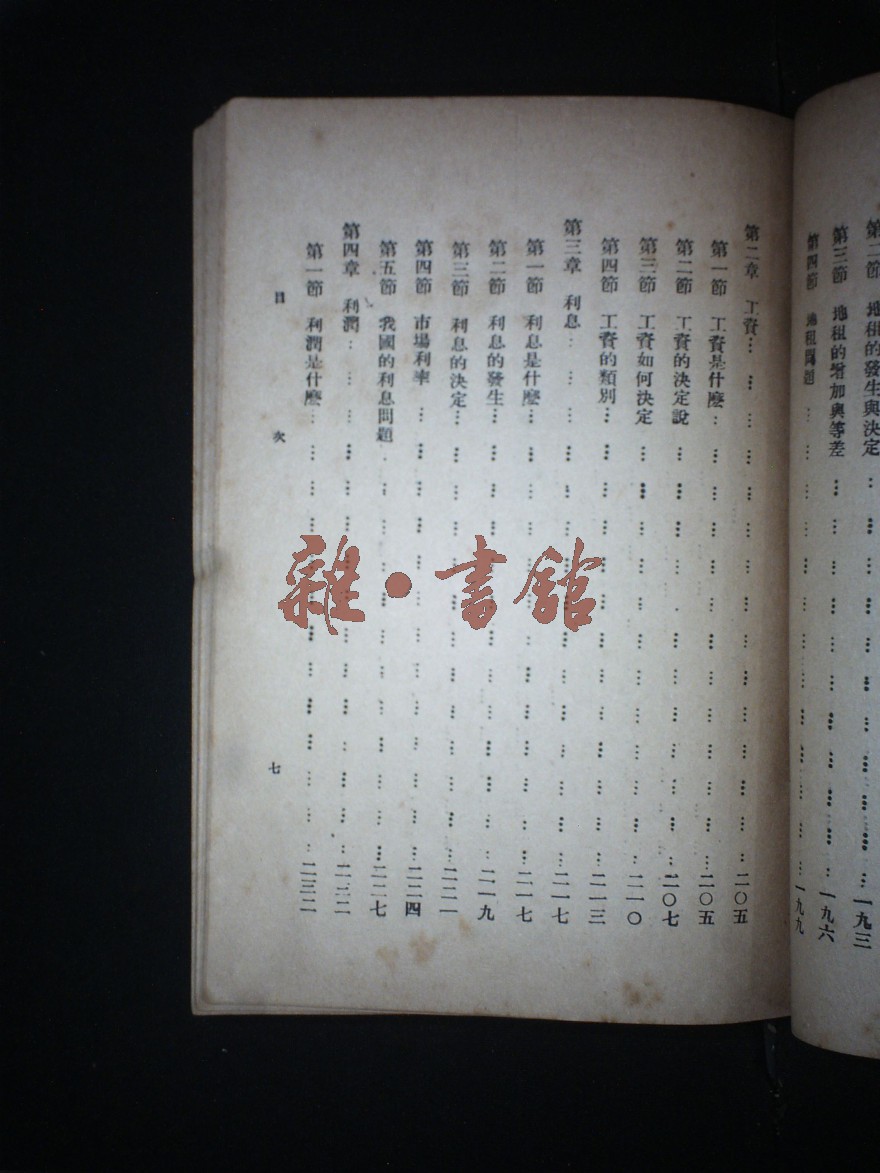 第二節　地租的發生與決定……一九三
第三節　地租的增加與等差……一九六
第四節　地租問題……一九九
第二章　工資……二〇五
第一節　工資是什麼……二〇五
第二節　工資的決定說……二〇七
第三節　工資如何決定……二一〇
第四節　工資的類別……二一三
第三章　利息……二一七
第一節　利息是什麼……二一七
第二節　利息的發生……二一九
第三節　利息的決定……二二一
第四節　市場利率……二二四
第五節　我國的利息問題……二二七
第四章　利潤……二三二
第一節　利潤是什麼……二三二
目次　七
雜·書館